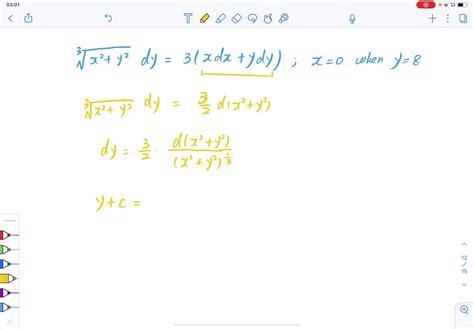 03:01
∛(x²+y²) dy = 3(xdx+ydy) ; x=0 when y=8
∛(x²+y²) dy = 3/2 d(x²+y²)
dy = 3/2 · d(x²+y²)/(x²+y²)^(1/3)
y+c =
12
15